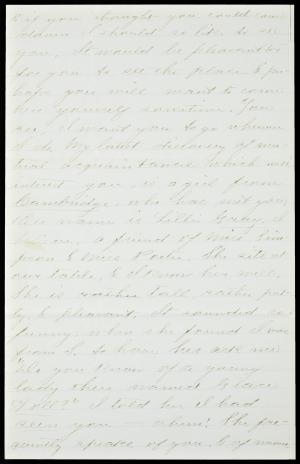 & if you thought you could come
down I should so like to see
you. It would be pleasant to
for you to see the place & per-
haps you will want to come
here yourself sometime. You
see, I want you to go where
I do. My latest discovery of mu-
tual acquaintance which will
interest you, is a girl from
Cambridge, who has met you,
Her name is Lilli Gray, I
believe, a friend of Miss Sim
pson & Miss She sits at
our table, & I know her well,
She is rather tall, rather pret-
ty, & pleasant. It sounded so
funny, when she found I was
from S. to have her ask me
"Do you know of a young
lady there named Grace
I told her I had
seen you — ahem! She fre-
quently speaks of you, & of